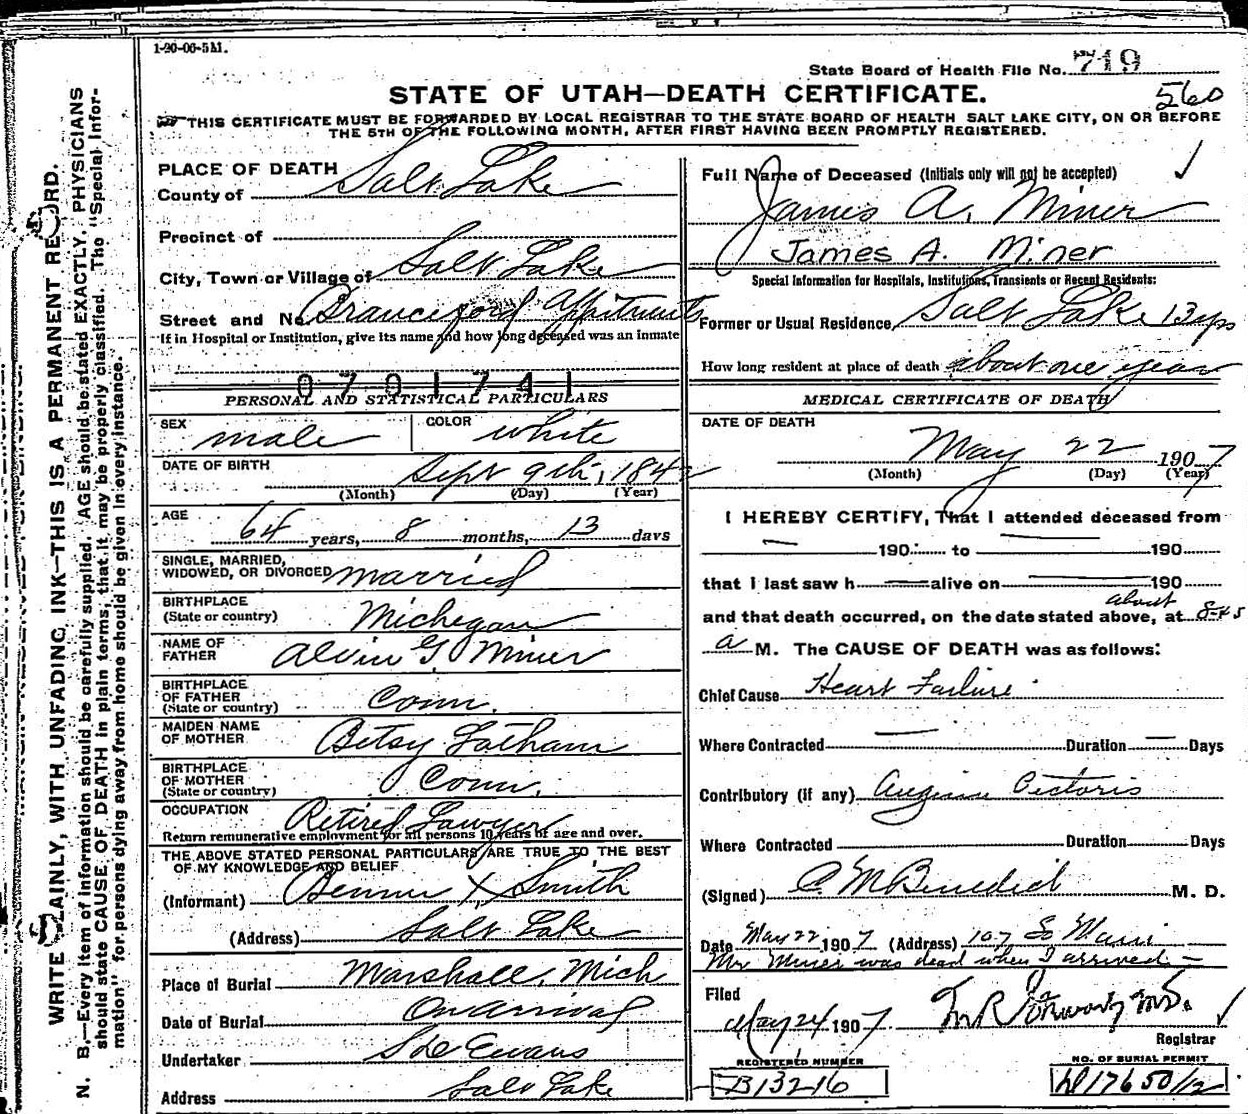 1-20-06-5M.
State Board of Health File No. 719
560
STATE OF UTAH—DEATH CERTIFICATE.
THIS CERTIFICATE MUST BE FORWARDED BY LOCAL REGISTRAR TO THE STATE BOARD OF HEALTH SALT LAKE CITY, ON OR BEFORE
THE 5TH OF THE FOLLOWING MONTH, AFTER FIRST HAVING BEEN PROMPTLY REGISTERED.
WRITE PLAINLY, WITH UNFADING INK—THIS IS A PERMANENT RECORD.
N. B.—Every item of information should be carefully supplied. AGE should be stated EXACTLY. PHYSICIANS
should state CAUSE OF DEATH in plain terms, that it may be properly classified. The "Special Infor-
mation" for persons dying away from home should be given in every instance.
PLACE OF DEATH
County of Salt Lake
Precinct of
City, Town or Village of Salt Lake
Street and No.
If in Hospital or Institution, give its name and how long deceased was an inmate
0701741
PERSONAL AND STATISTICAL PARTICULARS
SEX male COLOR white
DATE OF BIRTH Sept 9th, 1842
(Month) (Day) (Year)
AGE
64 years, 8 months, 13 days
SINGLE, MARRIED,
WIDOWED, OR DIVORCED married
BIRTHPLACE
(State or country) Michegan
NAME OF
FATHER Alvin G Miner
BIRTHPLACE
OF FATHER
(State or country) Conn.
MAIDEN NAME
OF MOTHER Betsy Latham
BIRTHPLACE
OF MOTHER
(State or country) Conn.
OCCUPATION Retired Lawyer
Return remunerative employment for all persons 10 years of age and over.
THE ABOVE STATED PERSONAL PARTICULARS ARE TRUE TO THE BEST
OF MY KNOWLEDGE AND BELIEF
(Informant) Benner X Smith
(Address) Salt Lake
Place of Burial Marshall, Mich
Date of Burial On arrival
Undertaker Evans
Address Salt Lake
Full Name of Deceased (Initials only will not be accepted)
James A. Miner
James A. Miner
Special Information for Hospitals, Institutions, Transients or Recent Residents:
Former or Usual Residence Salt Lake 13 yrs
How long resident at place of death about one year
MEDICAL CERTIFICATE OF DEATH
DATE OF DEATH
May 22 1907
(Month) (Day) (Year)
I HEREBY CERTIFY, That I attended deceased from
190 to 190
that I last saw h alive on 190
about
and that death occurred, on the date stated above, at 8-45
a M. The CAUSE OF DEATH was as follows:
Chief Cause Heart Failure
Where Contracted Duration Days
Contributory (if any) Angina Pectoris
Where Contracted Duration Days
(Signed) C M Benedict M. D.
Date May 22 1907 (Address) 107 So Main
Mr Miner was dead when I arrived
Filed
May 24 1907
Registrar
REGISTERED NUMBER
B13216
NO. OF BURIAL PERMIT